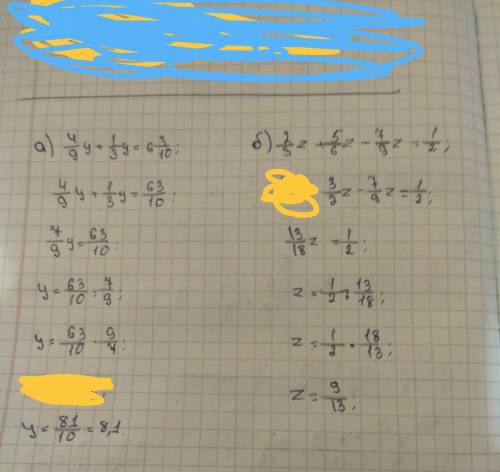 а) 4/9 y + 1/3 y = 6 3/10;
4/9 y + 1/3 y = 63/10;
7/9 y = 63/10;
y = 63/10 : 7/9;
y = 63/10 · 9/7;
y = 81/10 = 8,1
б) 2/3 z + 5/6 z - 7/9 z = 1/2;
3/2 z - 7/9 z = 1/2;
13/18 z = 1/2;
z = 1/2 : 13/18;
z = 1/2 · 18/13;
z = 9/13;